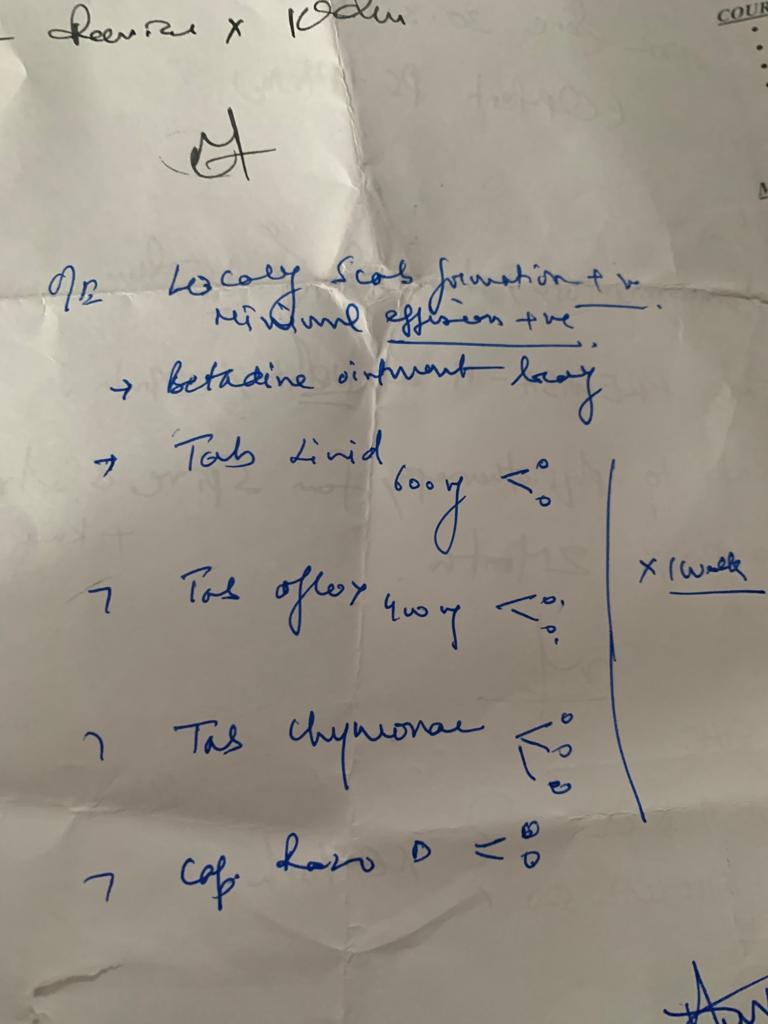 - Review x 10 days
COUR
O/E Localy Scab formation + ve
Minimal effision +ve
→ Betadine ointment localy
→ Tab Linid 600mg < 0 0
→ Tab oflox 400mg < 0 0
→ Tab chymonac < 0 0 0
x 1 week
→ Cap. Razo D < 0 0